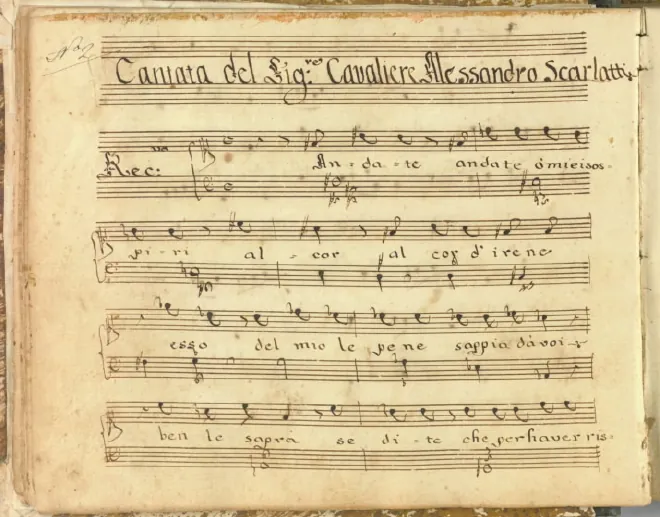 No 2
Cantata del Sig:re Cavaliere Alessandro Scarlatti
Rec: vo
An - da - te andate ô miei sos -
pi - ri al - cor al cor d'irene
esso del mio le pene sappia dà voi
ben le saprà se di - te che per haver ris -